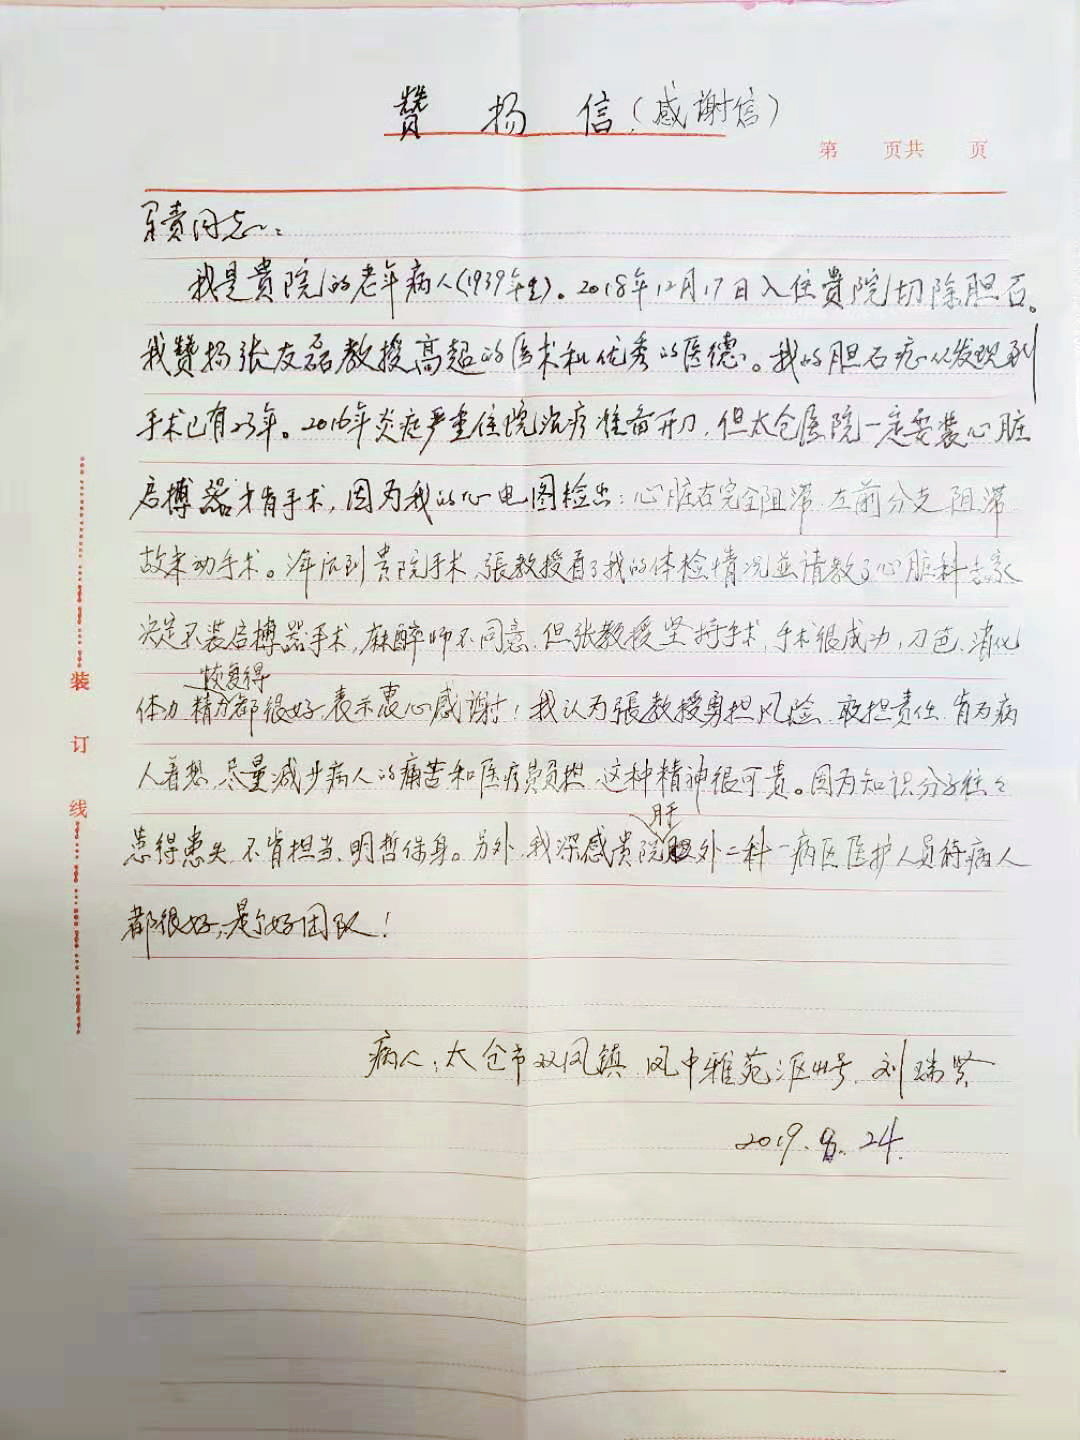 赞扬信(感谢信)
第 页共 页
负责同志:
我是貴院的老年病人(1939年生)。2018年12月17日入住貴院切除胆石。
我赞扬张友磊教授高超的医术和优秀的医德。我的胆石症从发现到
手术已有23年。2016年炎症严重住院治疗准备开刀,但太仓医院一定要装心脏
启搏器才肯手术,因为我的心电图检出:心脏右完全阻滞.左前分支阻滞
故未动手术。年底到貴院手术,張教授看了我的体检情况並请教了心脏科专家
决定不装启搏器手术,麻醉师不同意,但张教授坚持手术,手术很成功,刀色、消化
体力精力都恢复得很好,表示衷心感谢!我认为張教授勇担风险、敢担责任、肯为病
人着想、尽量减少病人的痛苦和医疗费负担、这种精神很可贵。因为知识分子往々
患得患失、不肯担当、明哲保身。另外,我深感贵院肝胆外二科一病区医护人员待病人
都很好,是个好团队!
病人:太仓市双凤镇 凤中雅苑 号 刘瑞贤
2019.8.24.
装
订
线